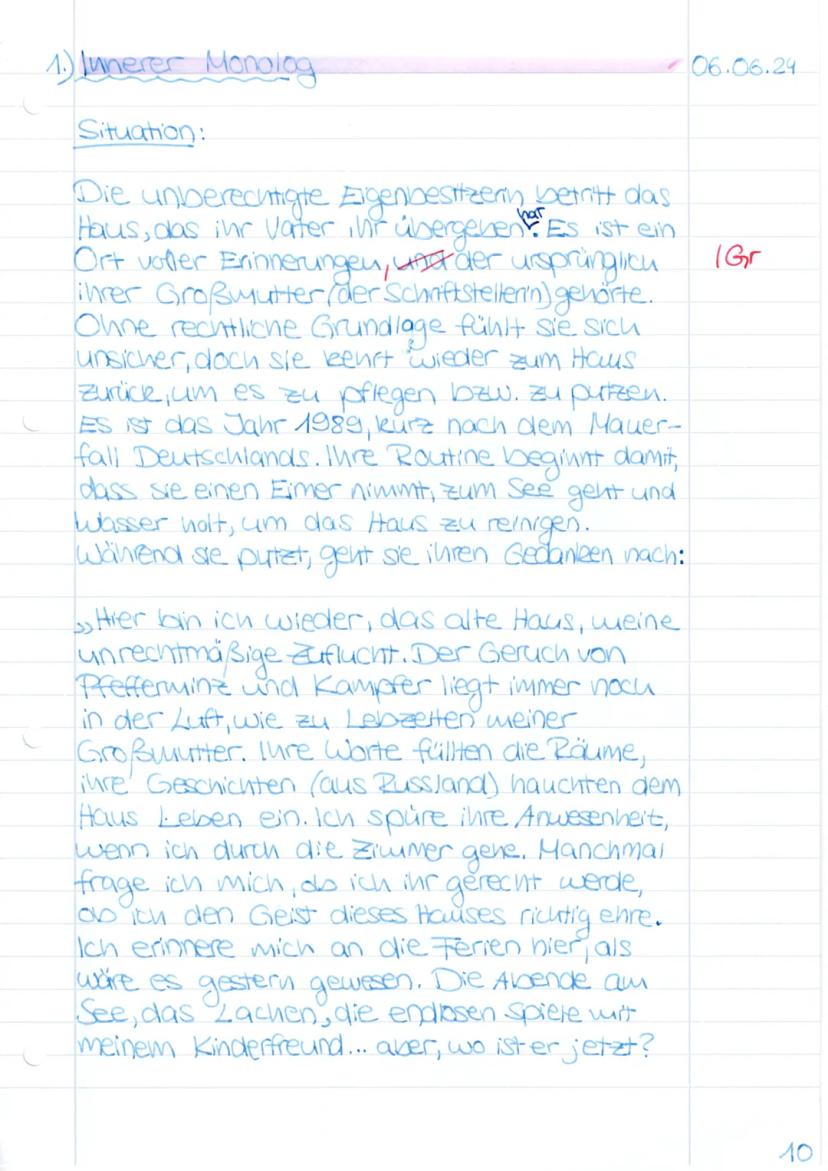 1.) Innerer Monolog 06.06.24
Situation:
Die unberechtigte Eigenbesitzerin betritt das
Haus, das ihr Vater ihr übergeben hat. Es ist ein
Ort voller Erinnerungen, und der ursprünglich |Gr
ihrer Großmutter (der Schriftstellerin) gehörte.
Ohne rechtliche Grundlage fühlt sie sich
unsicher, doch sie kehrt wieder zum Haus
zurück, um es zu pflegen bzw. zu putzen.
Es ist das Jahr 1989, kurz nach dem Mauer-
fall Deutschlands. Ihre Routine beginnt damit,
dass sie einen Eimer nimmt, zum See geht und
Wasser holt, um das Haus zu reinigen.
Während sie putzt, geht sie ihren Gedanken nach:
„Hier bin ich wieder, das alte Haus, meine
unrechtmäßige Zuflucht. Der Geruch von
Pfefferminz und Kampfer liegt immer noch
in der Luft, wie zu Lebzeiten meiner
Großmutter. Ihre Worte füllten die Räume,
ihre Geschichten (aus Russland) hauchten dem
Haus Leben ein. Ich spüre ihre Anwesenheit,
wenn ich durch die Zimmer gehe. Manchmal
frage ich mich, ob ich ihr gerecht werde,
ob ich den Geist dieses Hauses richtig ehre.
Ich erinnere mich an die Ferien hier, als
wäre es gestern gewesen. Die Abende am
See, das Lachen, die endlosen Spiele mit
meinem Kinderfreund... aber, wo ist er jetzt?
10